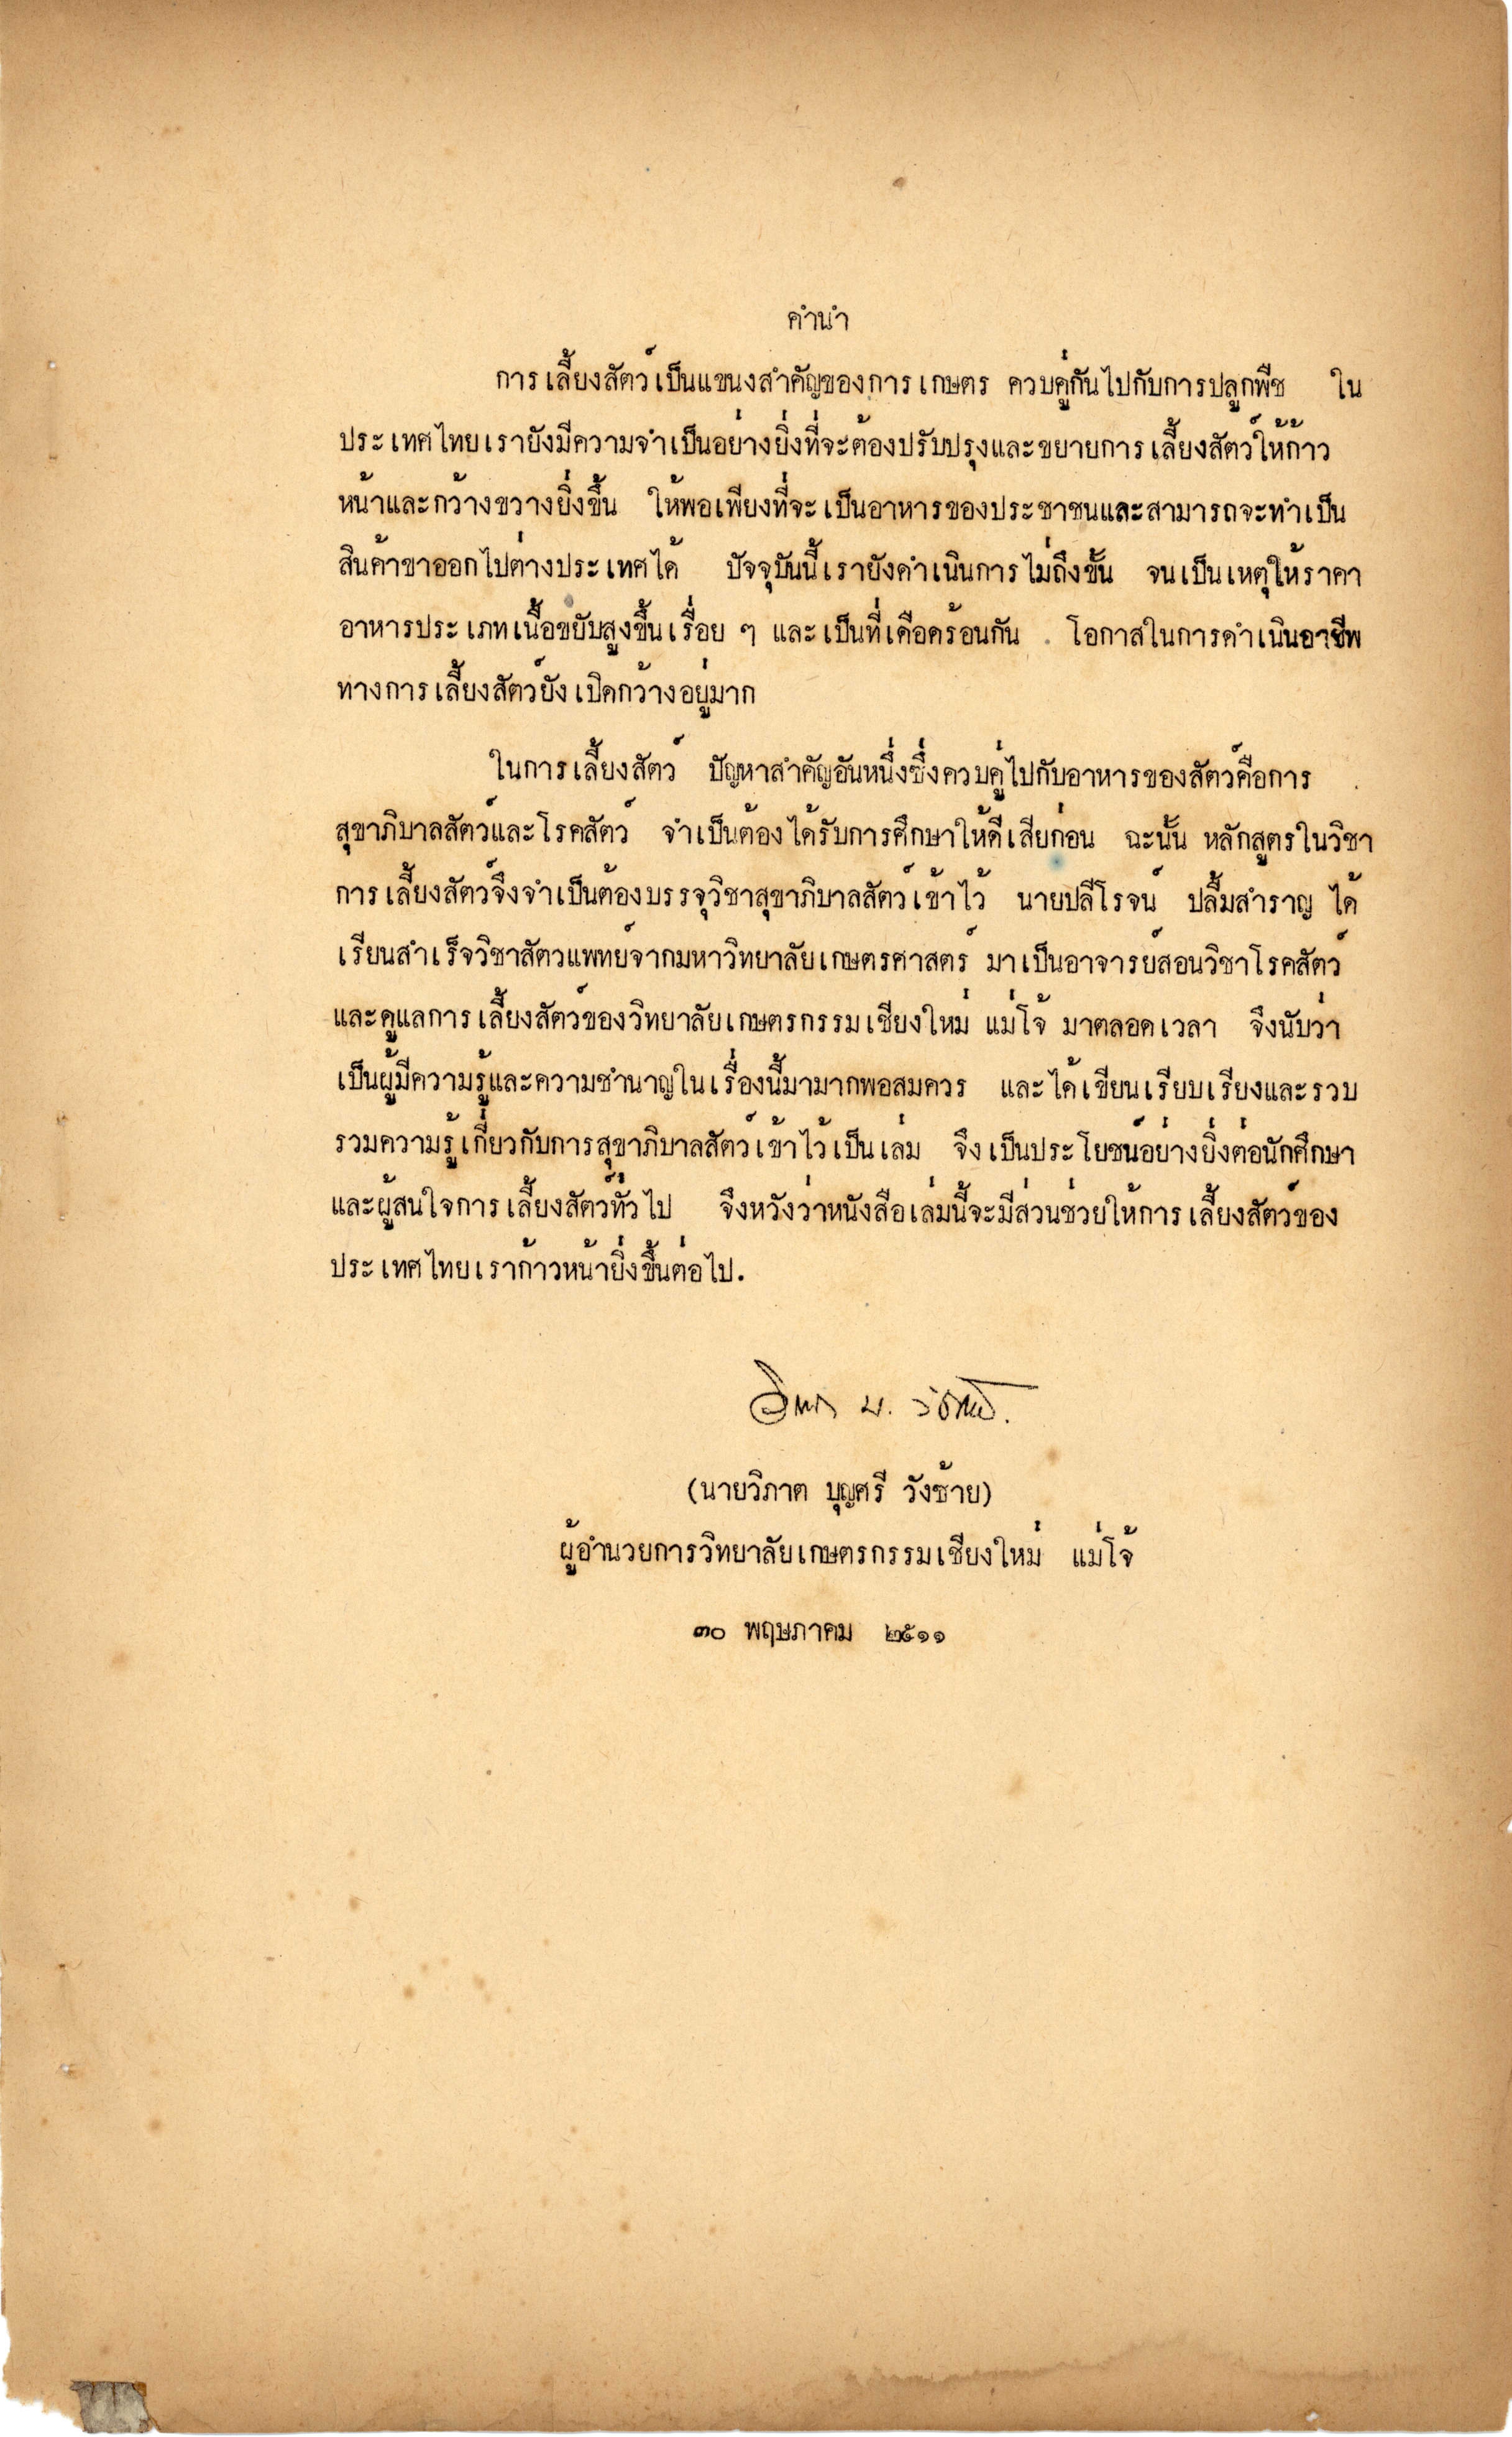 คำนำ
การเลี้ยงสัตว์เป็นแขนงสำคัญของการเกษตร ควบคู่กันไปกับการปลูกพืช ใน
ประเทศไทยเรายังมีความจำเป็นอย่างยิ่งที่จะต้องปรับปรุงและขยายการเลี้ยงสัตว์ให้ก้าว
หน้าและกว้างขวางยิ่งขึ้น ให้พอเพียงที่จะเป็นอาหารของประชาชนและสามารถจะทำเป็น
สินค้าขาออกไปต่างประเทศได้ ปัจจุบันนี้เรายังดำเนินการไม่ถึงขั้น จนเป็นเหตุให้ราคา
อาหารประเภทเนื้อขยับสูงขึ้นเรื่อย ๆ และเป็นที่เดือดร้อนกัน โอกาสในการดำเนินอาชีพ
ทางการเลี้ยงสัตว์ยังเปิดกว้างอยู่มาก
ในการเลี้ยงสัตว์ ปัญหาสำคัญอันหนึ่งซึ่งควบคู่ไปกับอาหารของสัตว์คือการ
สุขาภิบาลสัตว์และโรคสัตว์ จำเป็นต้องได้รับการศึกษาให้ดีเสียก่อน ฉะนั้น หลักสูตรในวิชา
การเลี้ยงสัตว์จึงจำเป็นต้องบรรจุวิชาสุขาภิบาลสัตว์เข้าไว้ นายปลีโรจน์ ปลื้มสำราญ ได้
เรียนสำเร็จวิชาสัตวแพทย์จากมหาวิทยาลัยเกษตรศาสตร์ มาเป็นอาจารย์สอนวิชาโรคสัตว์
และดูแลการเลี้ยงสัตว์ของวิทยาลัยเกษตรกรรมเชียงใหม่ แม่โจ้ มาตลอดเวลา จึงนับว่า
เป็นผู้มีความรู้และความชำนาญในเรื่องนี้มามากพอสมควร และได้เขียนเรียบเรียงและรวบ
รวมความรู้เกี่ยวกับการสุขาภิบาลสัตว์เข้าไว้เป็นเล่ม จึงเป็นประโยชน์อย่างยิ่งต่อนักศึกษา
และผู้สนใจการเลี้ยงสัตว์ทั่วไป จึงหวังว่าหนังสือเล่มนี้จะมีส่วนช่วยให้การเลี้ยงสัตว์ของ
ประเทศไทยเราก้าวหน้ายิ่งขึ้นต่อไป.
(นายวิภาต บุญศรี วังซ้าย)
ผู้อำนวยการวิทยาลัยเกษตรกรรมเชียงใหม่ แม่โจ้
๓๐ พฤษภาคม ๒๕๑๑